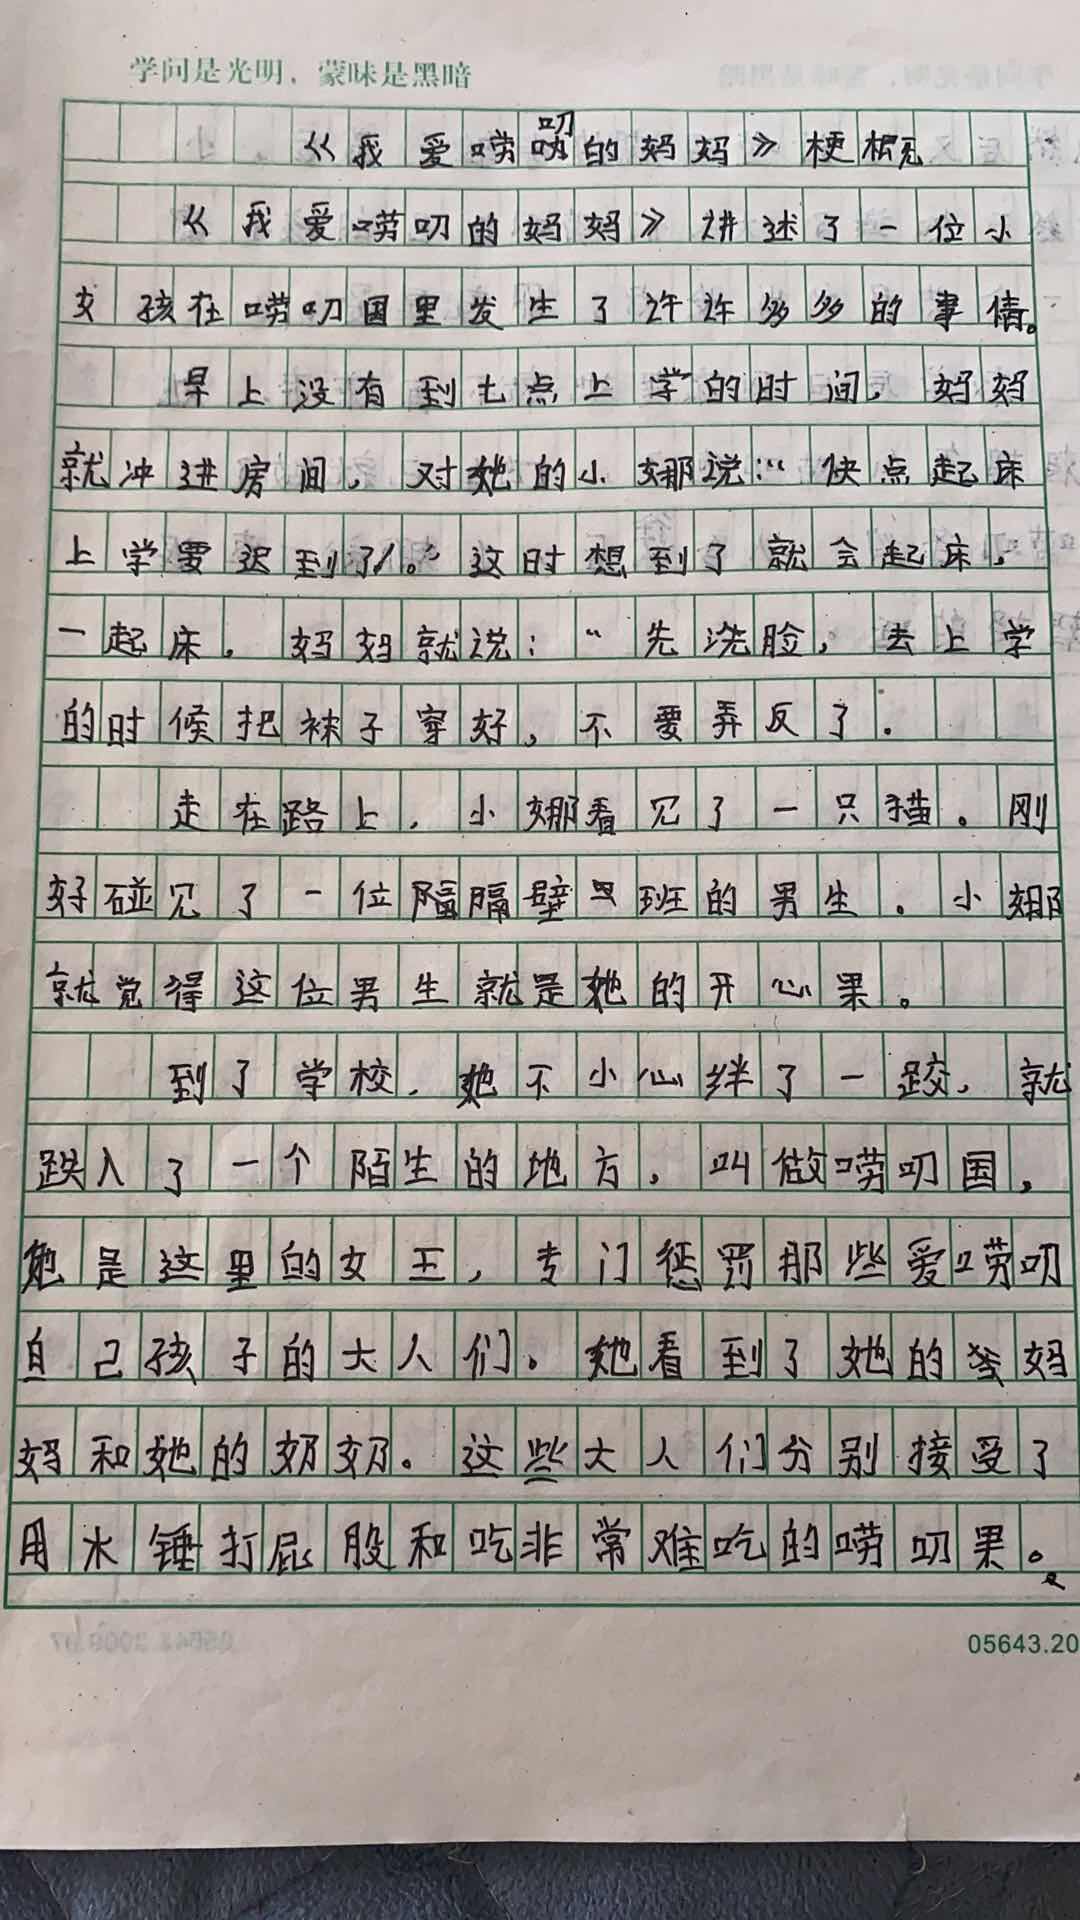 学问是光明，蒙昧是黑暗
《我爱唠叨的妈妈》梗概
《我爱唠叨的妈妈》讲述了一位小
女孩在唠叨国里发生了许许多多的事情。
早上没有到七点上学的时间，妈妈
就冲进房间，对她的小娜说：“快点起床
上学要迟到了！。”这时想到了就会起床，
一起床，妈妈就说：“先洗脸，去上学
的时候把袜子穿好，不要弄反了．
走在路上，小娜看见了一只猫。刚
好碰见了一位隔隔壁班的男生。小娜
就觉得这位男生就是她的开心果。
到了学校，她不小心绊了一跤，就
跌入了一个陌生的地方，叫做唠叨国，
她是这里的女王，专门惩罚那些爱唠叨
自己孩子的大人们。她看到了她的爸妈
妈和她的奶奶。这些大人们分别接受了
用水锤打屁股和吃非常难吃的唠叨果。
05643.20